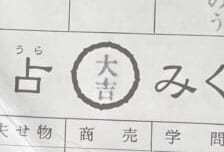 うら
占 大吉 みく
失せ物 商売 学問